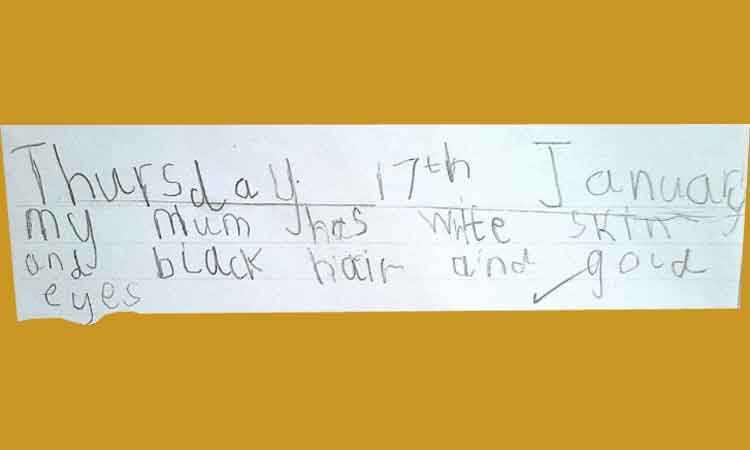 Thursday 17th January
my mum has wite skin
and black hair and gold
eyes